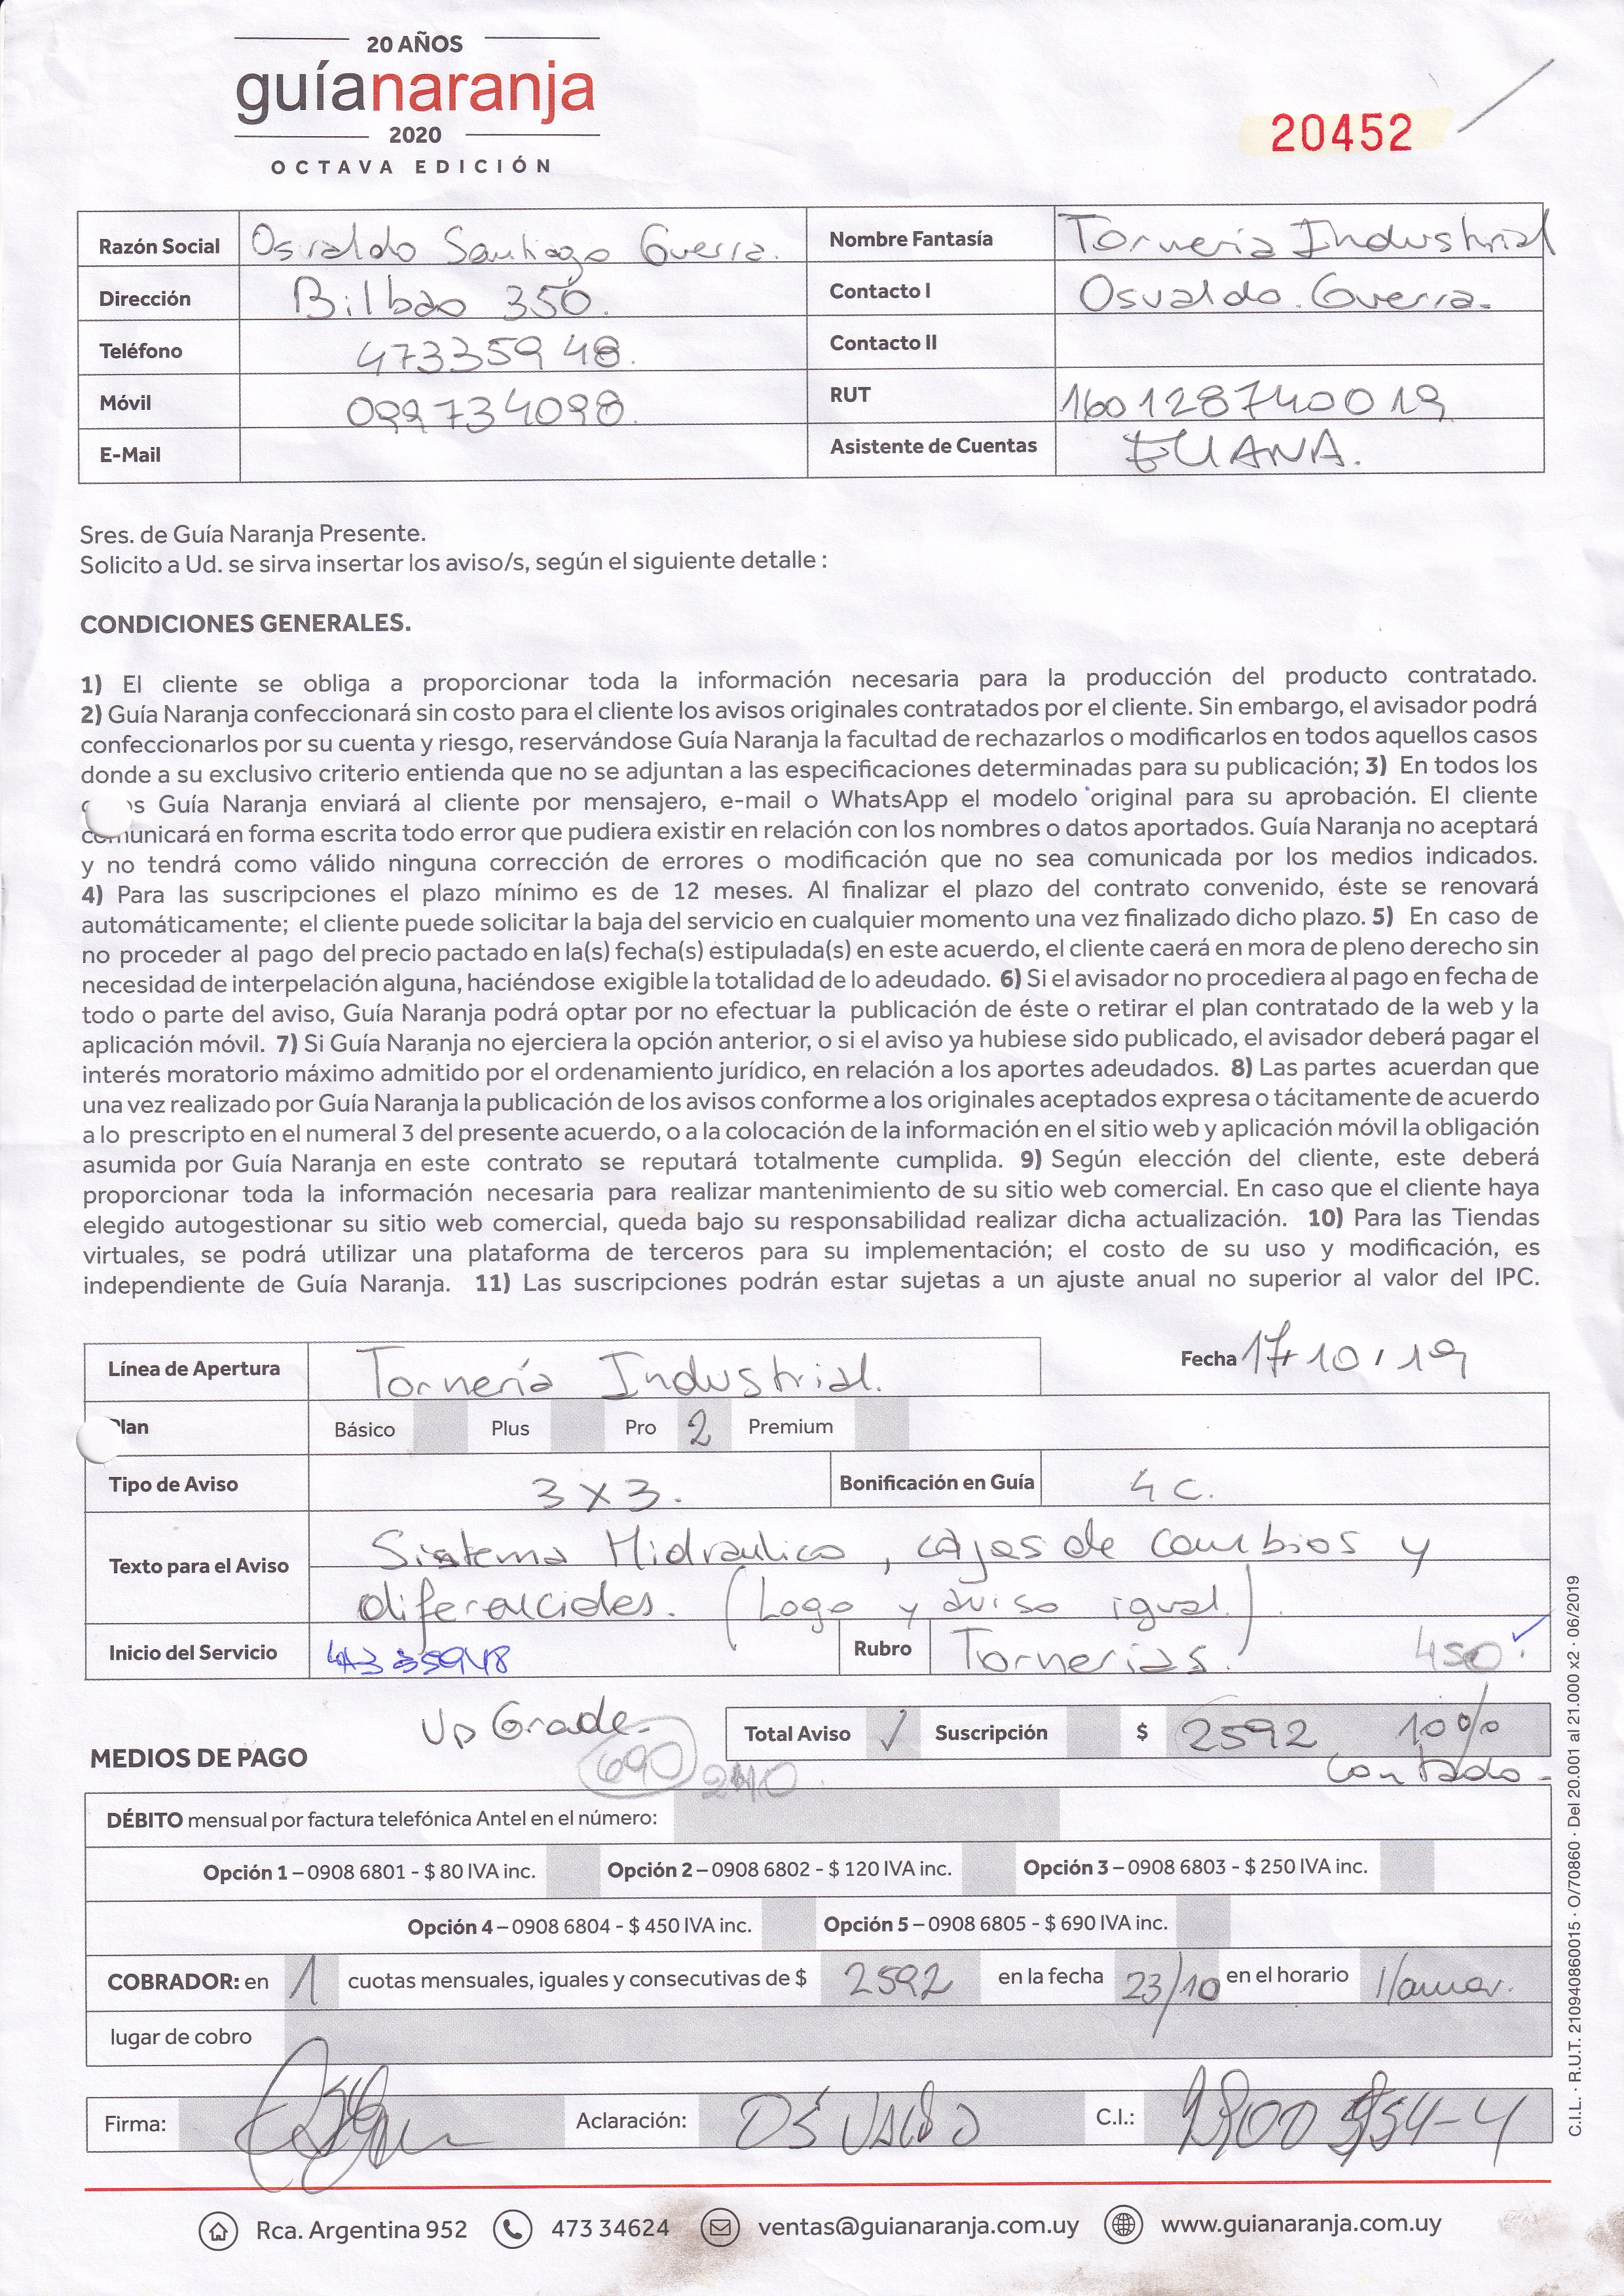 20 AÑOS
guíanaranja
2020
OCTAVA EDICIÓN
20452
Razón Social Osvaldo Santiago Guerra. Nombre Fantasía Tornería Industrial
Dirección Bilbao 350. Contacto I Osvaldo Guerra.
Teléfono 47335948. Contacto II
Móvil 099734098. RUT 160128740019
E-Mail Asistente de Cuentas ELIANA.
Sres. de Guía Naranja Presente.
Solicito a Ud. se sirva insertar los aviso/s, según el siguiente detalle :
CONDICIONES GENERALES.
1) El cliente se obliga a proporcionar toda la información necesaria para la producción del producto contratado.
2) Guía Naranja confeccionará sin costo para el cliente los avisos originales contratados por el cliente. Sin embargo, el avisador podrá
confeccionarlos por su cuenta y riesgo, reservándose Guía Naranja la facultad de rechazarlos o modificarlos en todos aquellos casos
donde a su exclusivo criterio entienda que no se adjuntan a las especificaciones determinadas para su publicación; 3) En todos los
Guía Naranja enviará al cliente por mensajero, e-mail o WhatsApp el modelo original para su aprobación. El cliente
comunicará en forma escrita todo error que pudiera existir en relación con los nombres o datos aportados. Guía Naranja no aceptará
y no tendrá como válido ninguna corrección de errores o modificación que no sea comunicada por los medios indicados.
4) Para las suscripciones el plazo mínimo es de 12 meses. Al finalizar el plazo del contrato convenido, éste se renovará
automáticamente; el cliente puede solicitar la baja del servicio en cualquier momento una vez finalizado dicho plazo. 5) En caso de
no proceder al pago del precio pactado en la(s) fecha(s) estipulada(s) en este acuerdo, el cliente caerá en mora de pleno derecho sin
necesidad de interpelación alguna, haciéndose exigible la totalidad de lo adeudado. 6) Si el avisador no procediera al pago en fecha de
todo o parte del aviso, Guía Naranja podrá optar por no efectuar la publicación de éste o retirar el plan contratado de la web y la
aplicación móvil. 7) Si Guía Naranja no ejerciera la opción anterior, o si el aviso ya hubiese sido publicado, el avisador deberá pagar el
interés moratorio máximo admitido por el ordenamiento jurídico, en relación a los aportes adeudados. 8) Las partes acuerdan que
una vez realizado por Guía Naranja la publicación de los avisos conforme a los originales aceptados expresa o tácitamente de acuerdo
a lo prescripto en el numeral 3 del presente acuerdo, o a la colocación de la información en el sitio web y aplicación móvil la obligación
asumida por Guía Naranja en este contrato se reputará totalmente cumplida. 9) Según elección del cliente, este deberá
proporcionar toda la información necesaria para realizar mantenimiento de su sitio web comercial. En caso que el cliente haya
elegido autogestionar su sitio web comercial, queda bajo su responsabilidad realizar dicha actualización. 10) Para las Tiendas
virtuales, se podrá utilizar una plataforma de terceros para su implementación; el costo de su uso y modificación, es
independiente de Guía Naranja. 11) Las suscripciones podrán estar sujetas a un ajuste anual no superior al valor del IPC.
Línea de Apertura Tornería Industrial. Fecha 17/10/19
Plan Básico Plus Pro 2 Premium
Tipo de Aviso 3x3. Bonificación en Guía 4 C.
Texto para el Aviso Sistema Hidraulico, cajas de cambios y
diferenciales. (Logo y aviso igual).
Inicio del Servicio 47335948 Rubro Tornerias. 450
Up Grade- Total Aviso ✓ Suscripción $ 2592 10%
MEDIOS DE PAGO 690 contado-
DÉBITO mensual por factura telefónica Antel en el número:
Opción 1 – 0908 6801 - $ 80 IVA inc. Opción 2 – 0908 6802 - $ 120 IVA inc. Opción 3 – 0908 6803 - $ 250 IVA inc.
Opción 4 – 0908 6804 - $ 450 IVA inc. Opción 5 – 0908 6805 - $ 690 IVA inc.
COBRADOR: en 1 cuotas mensuales, iguales y consecutivas de $ 2592 en la fecha 23/10 en el horario llamar.
lugar de cobro
Firma: Aclaración: OSVALDO C.I.:
Rca. Argentina 952 473 34624 ventas@guianaranja.com.uy www.guianaranja.com.uy
C.I.L. · R.U.T. 210940860015 · O/70860 · Del 20.001 al 21.000 x2 · 06/2019